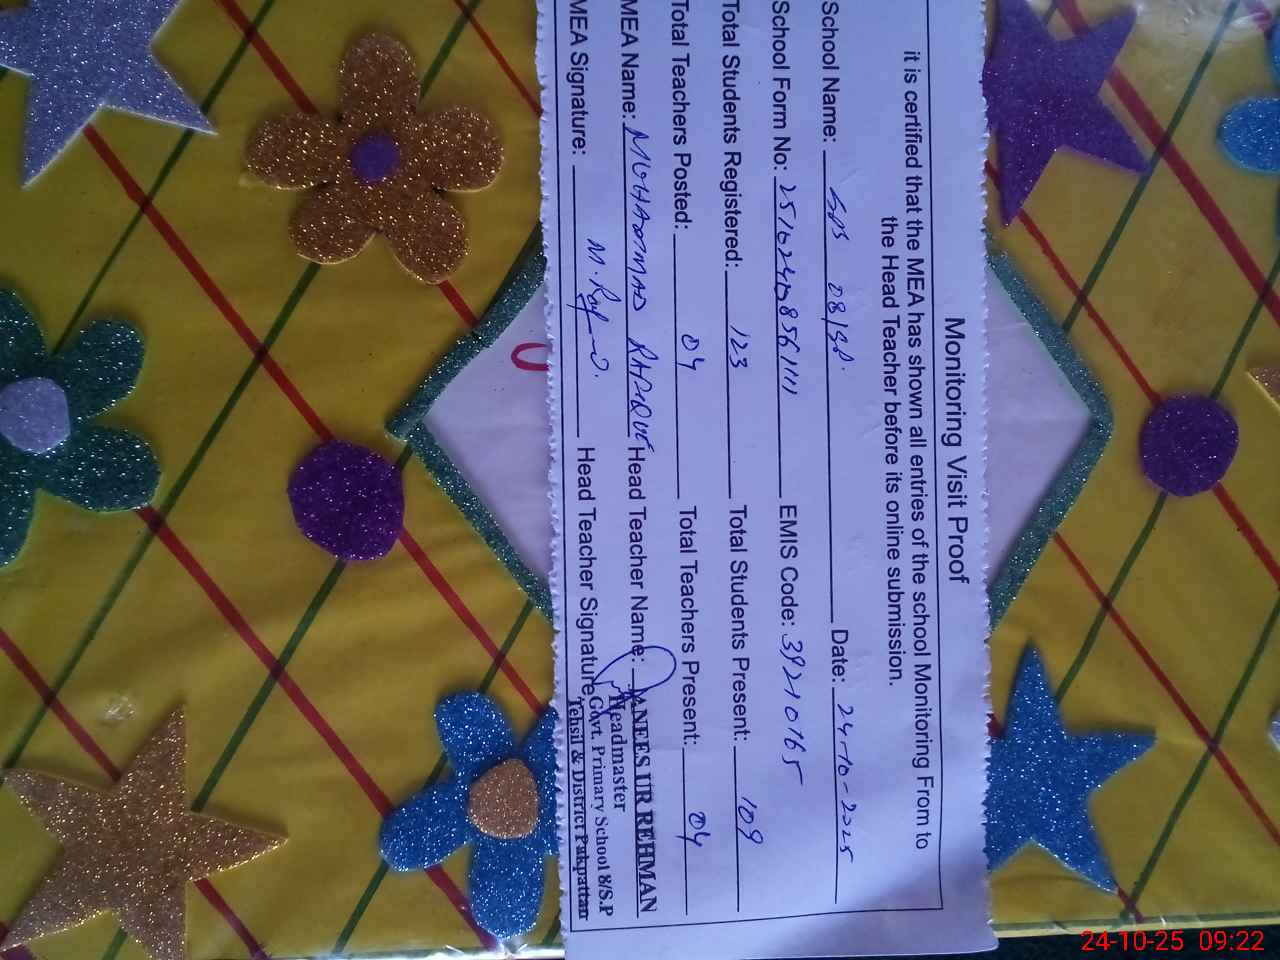 Monitoring Visit Proof
it is certified that the MEA has shown all entries of the school Monitoring From to
the Head Teacher before its online submission.
School Name: GPS 08/SP. Date: 24-10-2025
School Form No: EMIS Code: 39210165
Total Students Registered: 123 Total Students Present: 109
Total Teachers Posted: 04 Total Teachers Present: 04
MEA Name: MUHAMMAD RAFIQUE Head Teacher Name: ANEES UR REHMAN
Headmaster
MEA Signature: Head Teacher Signature Govt. Primary School 8/S.P
Tehsil & District Pakpattan
24-10-25 09:22